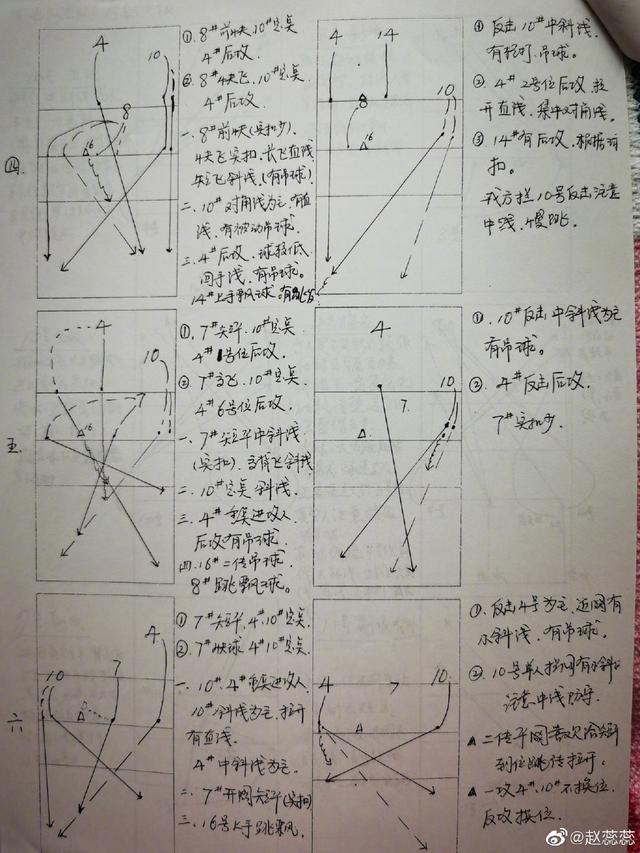 四.
4
10
8
16
①. 8#前快,10#
4#后攻.
② 8#快飞.10#
4#后攻.
一. 8#前快(实扣多).
快飞实扣.长飞直线
短飞斜线.(有吊球)
二. 10#对角线为主.有直
线.有被动吊球.
三. 4#后攻.球较低
回手线.有吊球.
14#上手飘球.
4
14
10
8
16
① 反击10#中斜线.
有轻打.吊球.
② 4# 2号位后攻.拉
开直线.集中对角线.
③ 14#有后攻.根据
扣.
我方拦10号反击注意
中线.慢跳.
五.
4
10
7
16
①. 7#短平.10#
4#1号位后攻.
② 7# 飞.10#
4#6号位后攻.
一. 7#短平中斜线
(实扣). 背飞斜线
二. 10# 斜线.
三. 4# 进攻
后攻有吊球.
四. 16#二传吊球.
8#跳飘球.
4
10
7.
①. 10#反击中斜线为主
有吊球。
② 4#反击后攻.
7#实扣多.
六
4
10
7
① 7#短平.4#.10#
② 7#快球.4#10#
一. 10#.4# 进攻
10#斜线为主.拉开
有直线.
4#中斜线为主.
二. 7#开网短平(实扣)
三. 16号上手跳飘.
4
7
10
①. 反击4号为主.近网有
小斜线.有吊球.
② 10号单人拦网有小斜
注意中线防守.
二传平网
到位跳传拉开.
一攻4#.10#不换位.
反攻换位.
@赵蕊蕊